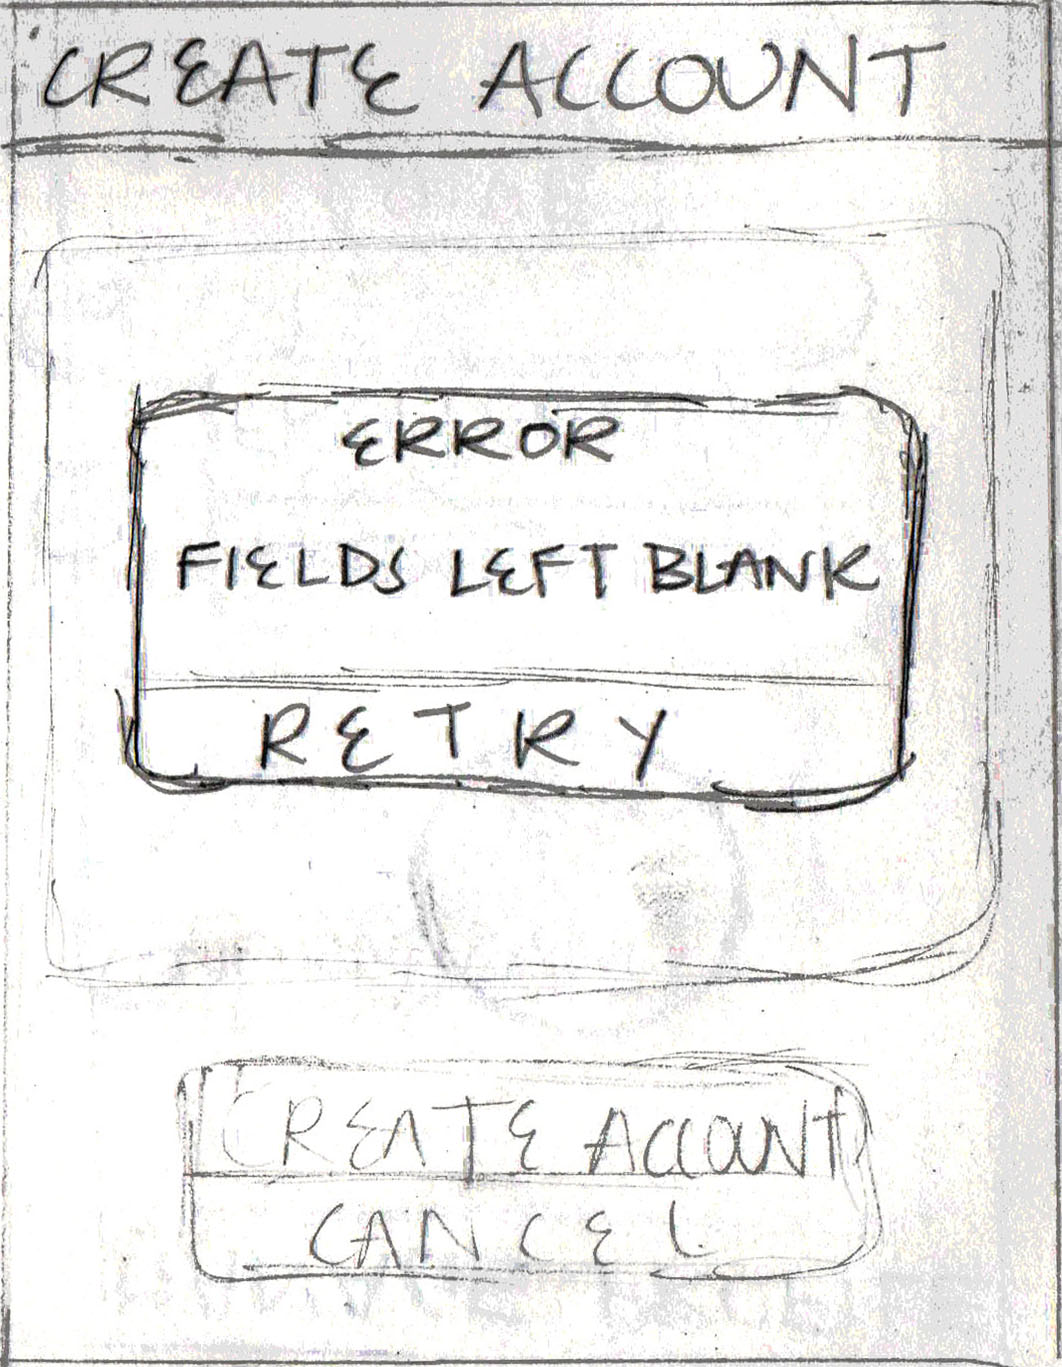 CREATE ACCOUNT
ERROR
FIELDS LEFT BLANK
RETRY
CREATE ACCOUNT
CANCEL